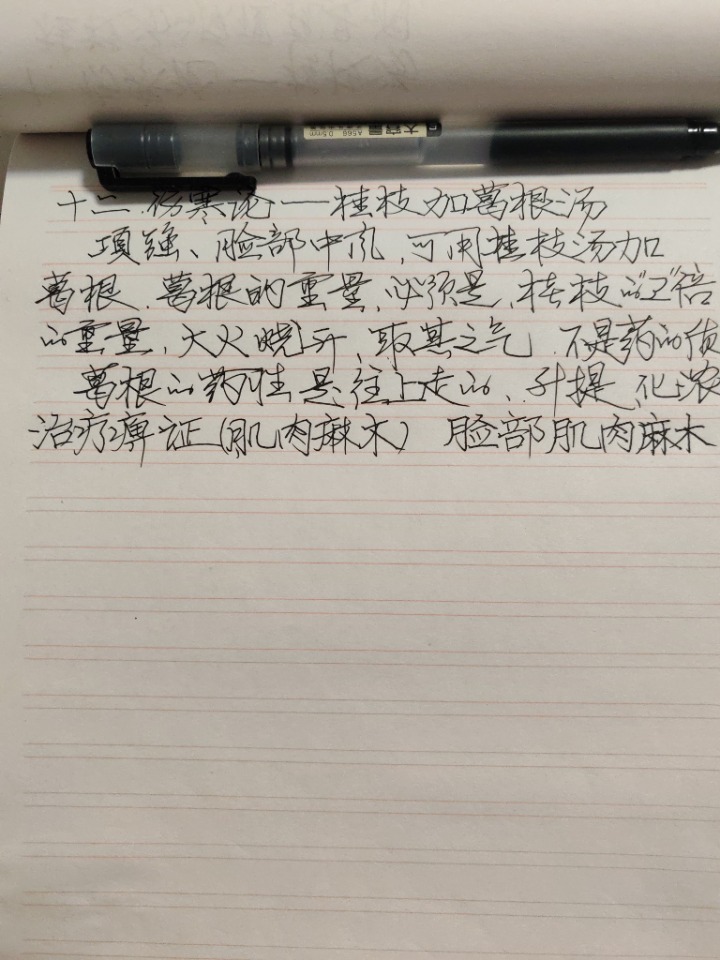 大容量
A566 0.5mm
十二.伤寒论——桂枝加葛根汤
项强、脸部中风,可用桂枝汤加
葛根.葛根的重量,必须是,桂枝的"2"倍
的重量,大火烧开,取其之气.不是药的质
葛根的药性是往上走的、升提,化浓
治疗痹证(肌肉麻木) 脸部肌肉麻木